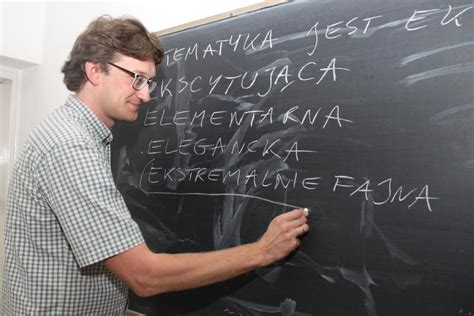 TEMATYKA JEST EK
EKSCYTUJĄCA
ELEMENTARNA
ELEGANCKA
(EKSTREMALNIE FAJNA